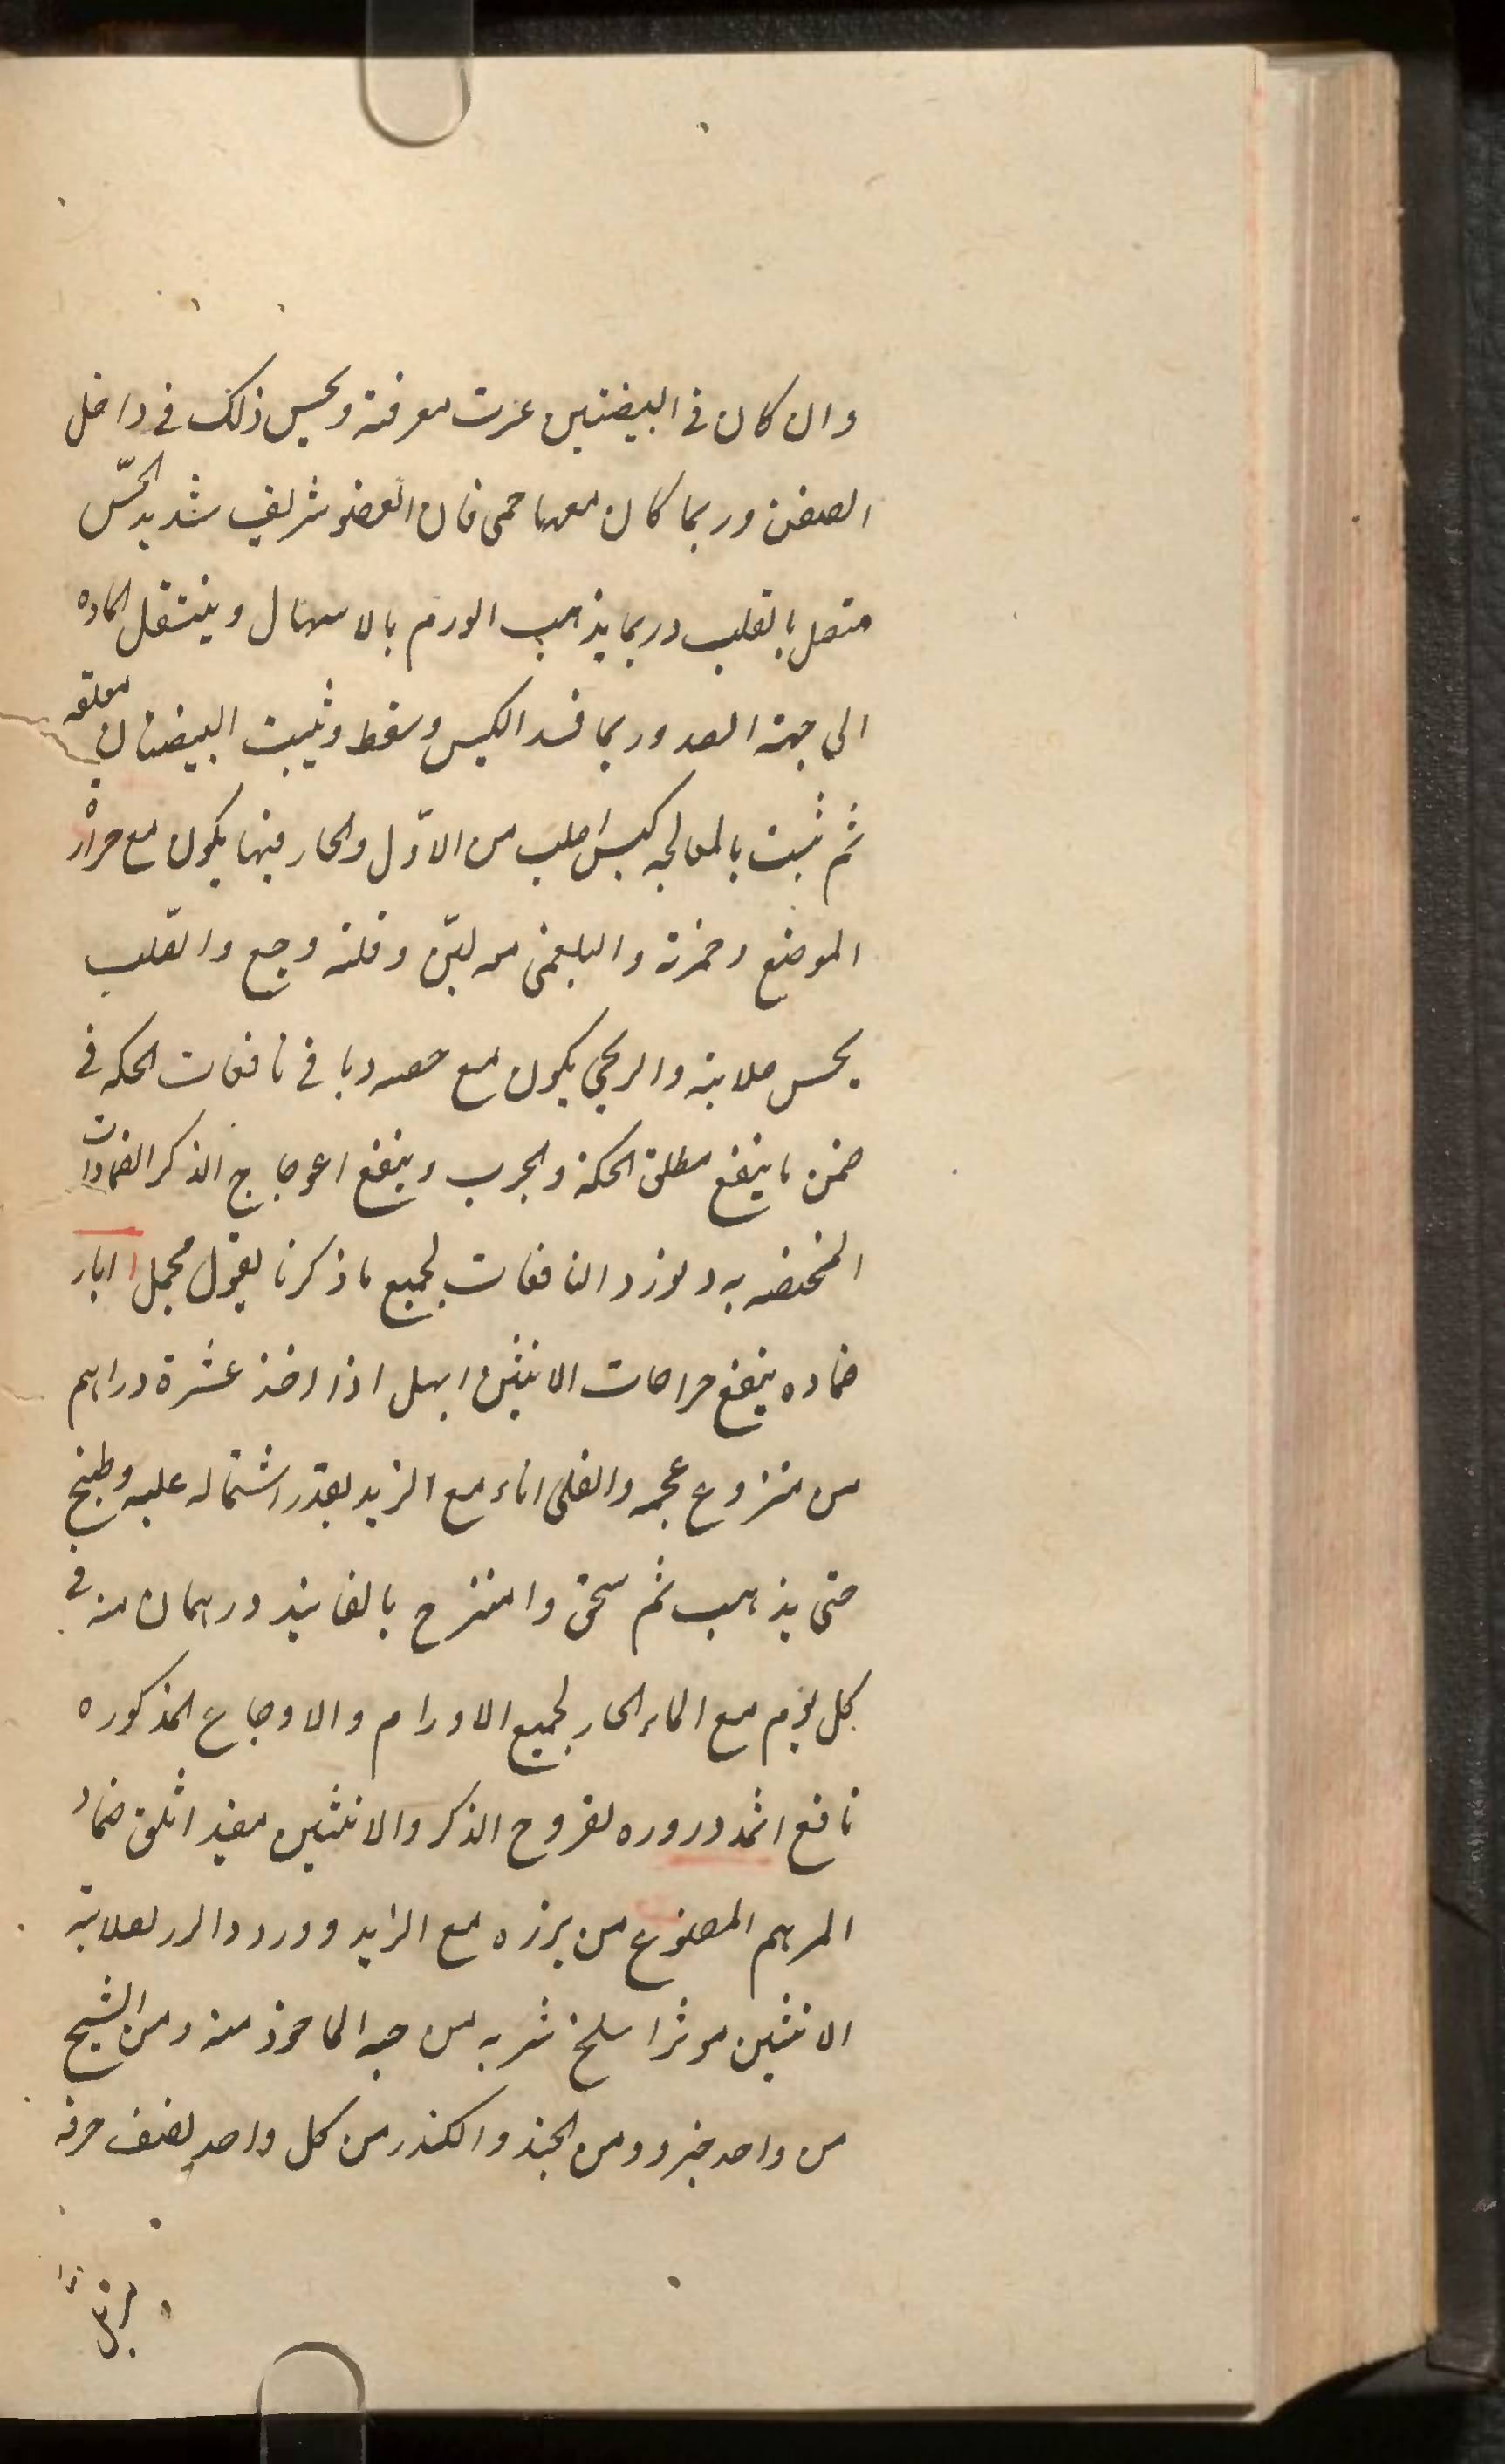 وان كان فى البيضتين عسرت معرفته ويحس ذلك فى داخل
الصفن وربما كان معها حمى فان العضو شريف شديد الحسّ
متصل بالقلب وربما يذهب الورم بالاسهال وينتقل الماده
الى جهة الصدر وربما فسد الكيس وسقط وثبت البيضتان معلقه
ثم ثبت بالمعالجه كيس اصلب من الاوّل والحار فيها يكون مع حرارة
الموضع وحمرته والبلغمى مع لين وقلة وجع والصلب
يحس صلابته والريحي يكون مع تمدد وباقى نافعات الحكه فى
ضمن ما ينفع مطلق الحكة والجرب وينفع اعوجاج الذكر الضمادات
المختصه به ولنورد النافعات لجميع ما ذكرنا بقول مجمل ابار
ضماده ينفع جراحات الانثيين ابهل اذا اخذ عشرة دراهم
من منزوع عجمه والقى اناء مع الزبد بقدر اشتماله عليه وطبخ
حتى يذهب ثم سحق وامتزج بالفانيذ درهمان منه فى
كل يوم مع الماء الحار لجميع الاورام والاوجاع المذكوره
نافع اثمد دروره لقروح الذكر والانثيين مفيد اثلق ضماد
المرهم المصنوع من بزره مع الزبد وورد لصلابة
الانثيين موثر اسلخ شربه من حبه الماخوذ منه ومن الشيح
من واحد جزو ومن الجند والكندر من كل واحد نصف حرفه